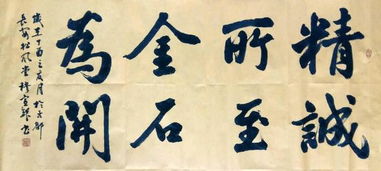 精誠
所至
金石
為開
歲在丁酉之夏月於京郊
長安松風堂